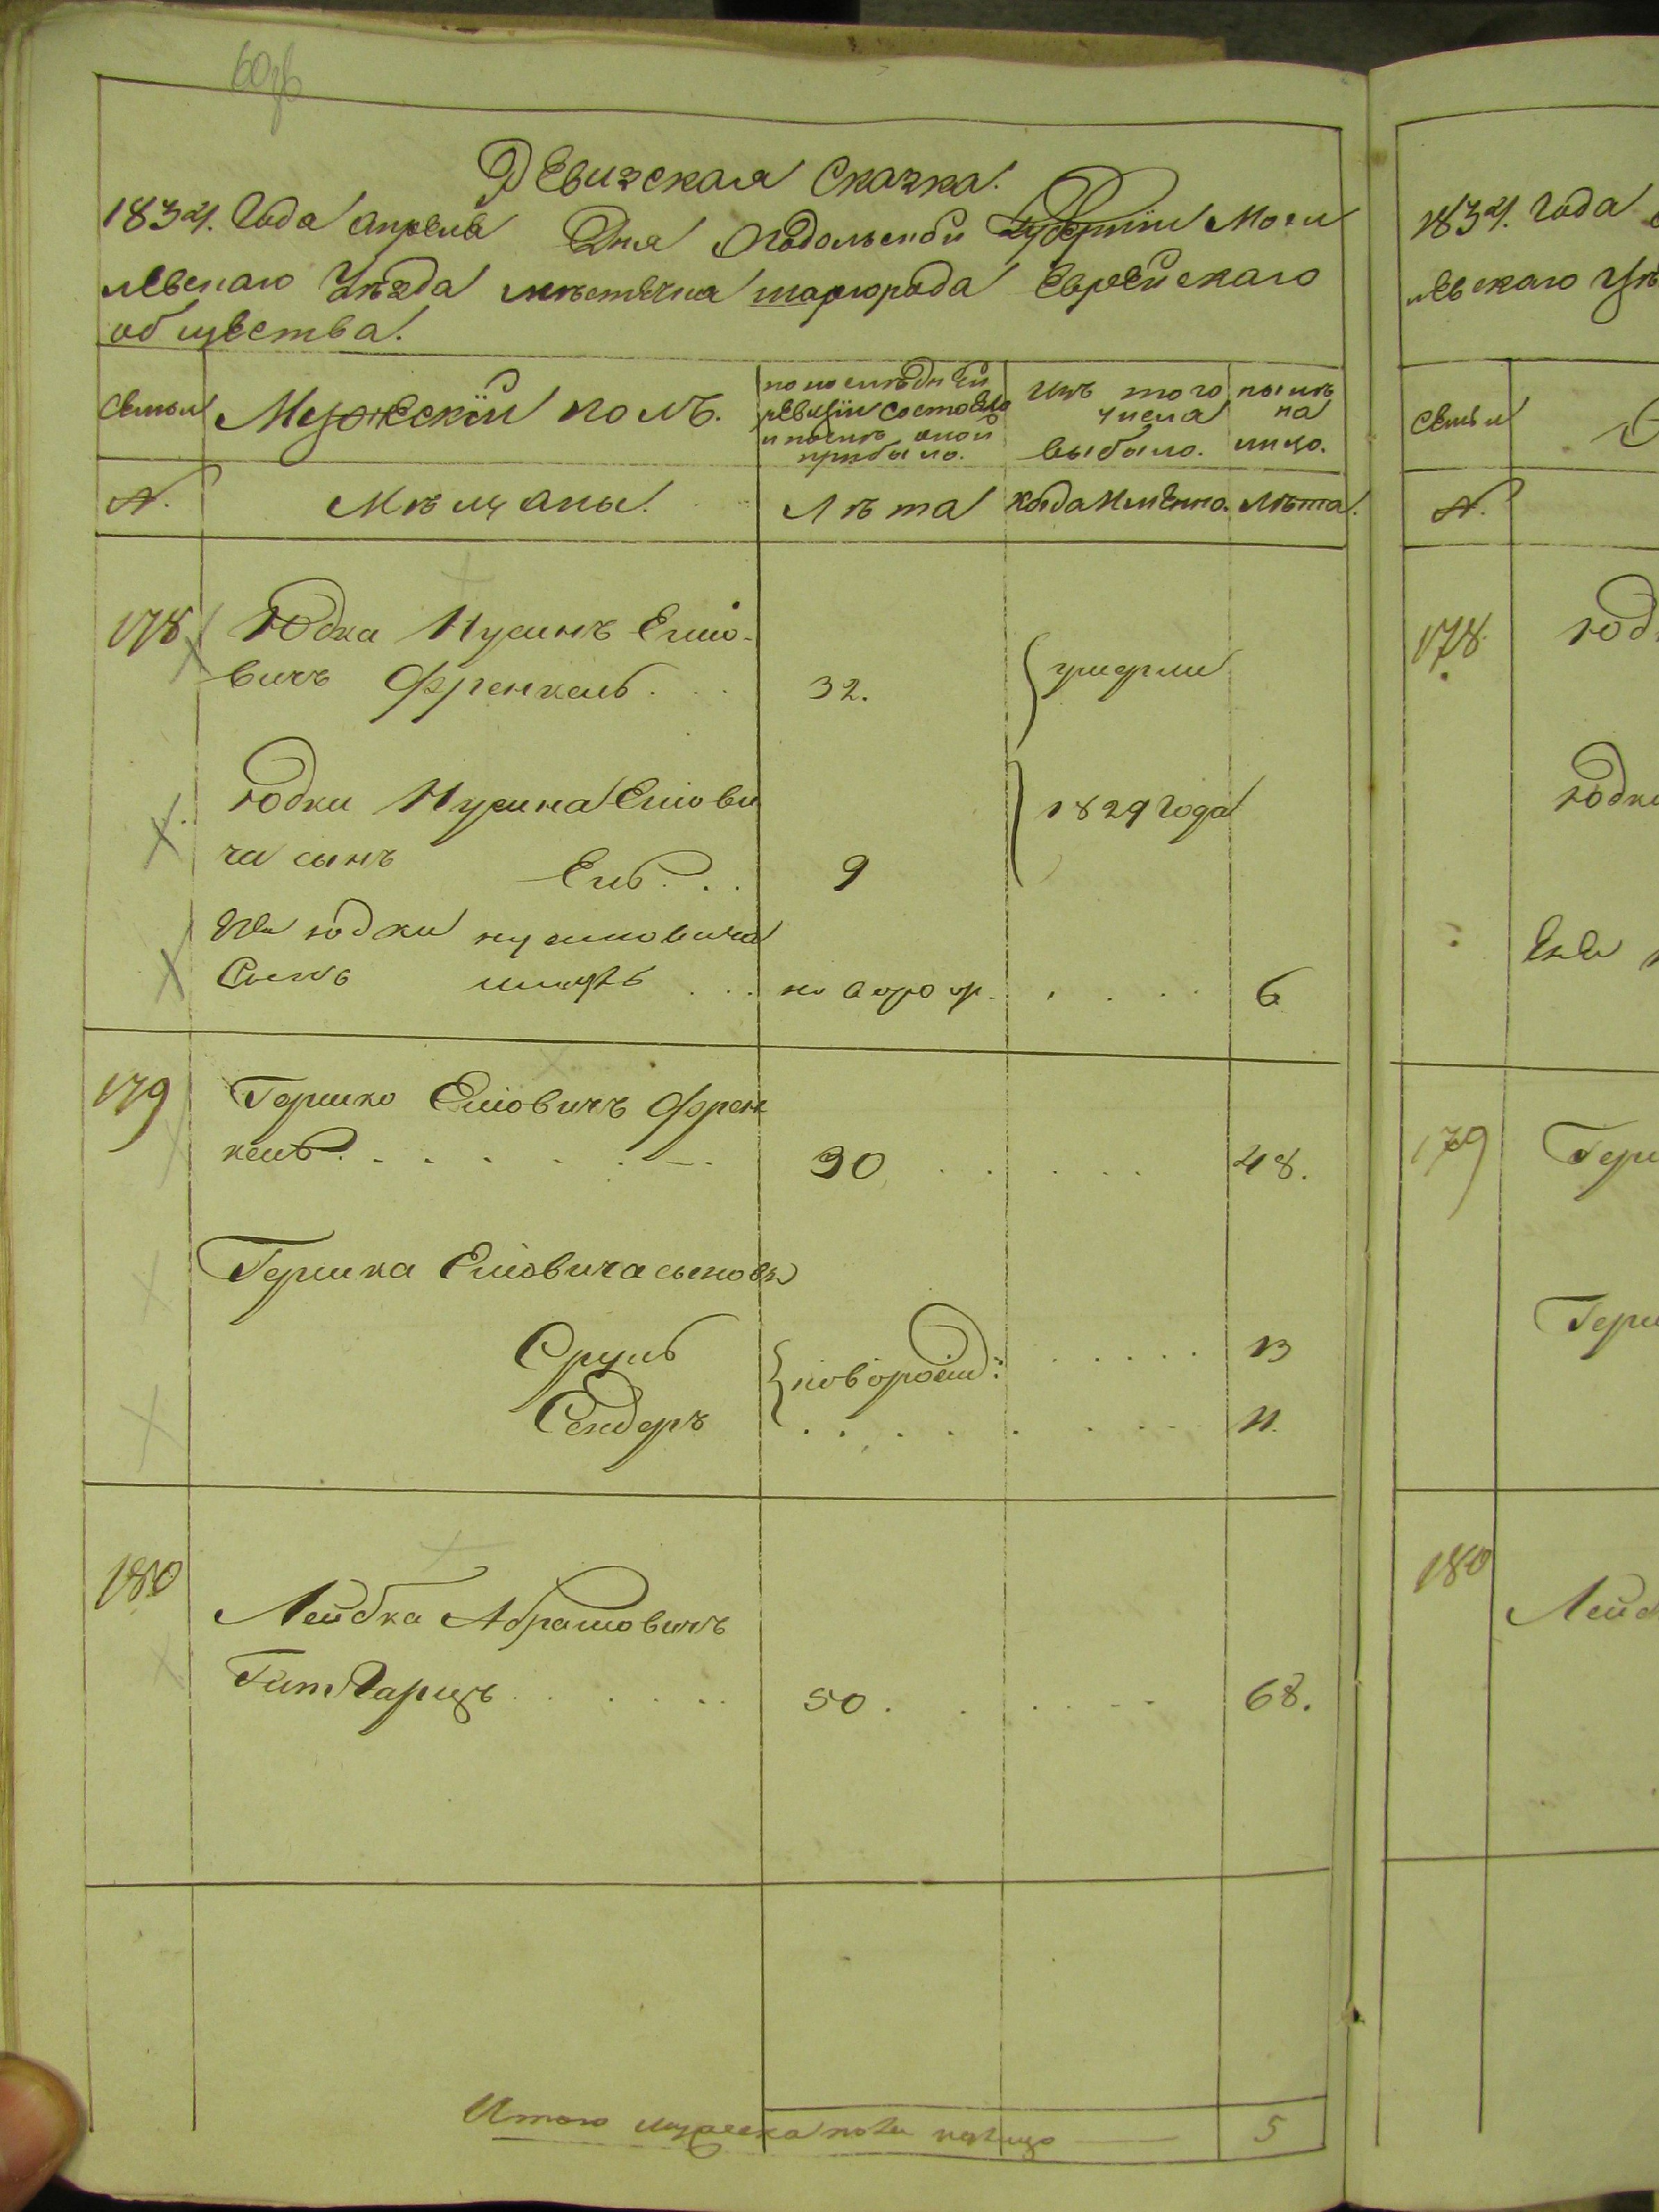 60об
Ревизская Сказка.
1834. Года Апреля Дня Подольской Губернии Моги
левскаго Уѣзда мѣстечка шаргорода Еврейскаго
общества.
Семьи
Мужескій полъ.
по послѣдней
ревизіи состояло
и послѣ оной
прибыло.
Изъ того
числа
выбыло.
нынѣ
на
лицо.
№.
Мѣщаны.
Лѣта
Когда Именно.
Лѣта.
178
Юдка Нусинъ Еліо-
вичъ Френкель . . .
32.
умерли
Юдки Нусина Еліови
ча сынъ
Ель . . .
9
1829 года
Юдки нусиновича
Сынъ . . .
новорож . . . .
6
179
Гершко Еліовичъ Френ
кель . . . . . .
30 . . . . .
48.
Гершка Еліовича сыновя
Сруль
новорожд: . . . . .
13
Сендеръ
. . . . . . . .
11.
180
Лейбка Абрамовичъ
Гитгарцъ . . . . .
50 . . . . . .
68.
Итого мужеска пола налицо
5
1834. Года
левскаго Уѣ
Семьи
№.
178.
Юд
Юдки
179
Герш
Герш
180
Лейб